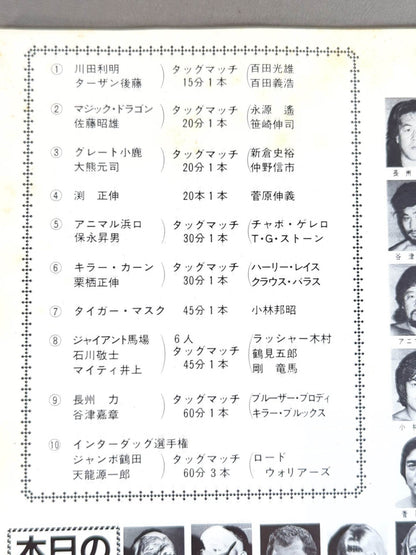 ① 川田利明 タッグマッチ 百田光雄
ターザン後藤 15分1本 百田義浩
② マジック・ドラゴン タッグマッチ 永源 遙
佐藤昭雄 20分1本 笹崎伸司
③ グレート小鹿 タッグマッチ 新倉史裕
大熊元司 20分1本 仲野信市
④ 渕 正伸 20本1本 菅原伸義
⑤ アニマル浜口 タッグマッチ チャボ・ゲレロ
保永昇男 30分1本 T・G・ストーン
⑥ キラー・カーン タッグマッチ ハーリー・レイス
栗栖正伸 30分1本 クラウス・バラス
⑦ タイガー・マスク 45分1本 小林邦昭
⑧ ジャイアント馬場 6人 ラッシャー木村
石川敬士 タッグマッチ 鶴見五郎
マイティ井上 45分1本 剛 竜馬
⑨ 長州 力 タッグマッチ ブルーザー・ブロディ
谷津嘉章 60分1本 キラー・ブルックス
⑩ インターダッグ選手権
ジャンボ鶴田 タッグマッチ ロード
天龍源一郎 60分3本 ウォリアーズ
長州
谷津
アニ
小林
菅
本日の